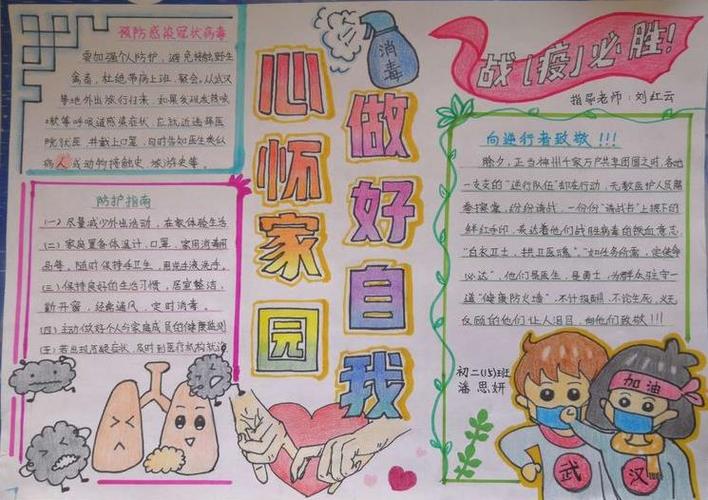 预防感染冠状病毒
要加强个人防护，避免接触野生
禽畜，杜绝带病上班、聚会。从武汉
等地外出旅行归来，如果发现发热咳
嗽等呼吸道感染症状，应就近选择医
院就医，并戴上口罩，同时告知医生类似
病人或动物接触史、旅游史等。
防护指南
(一)尽量减少外出活动，在家体验生活
(二)家庭置备体温计，口罩，家用消毒用
品等，随时保持手卫生，用洗手液洗手。
(三)保持良好的生活习惯，居室整洁，
勤开窗，经常通风，定时消毒。
(四)主动做好个人与家庭成员的健康监测
(五)若出现可疑症状，及时到医疗机构就诊
心怀家园
做好自我
消毒
战(疫)必胜!
指导老师：刘红云
向逆行者致敬!!!
除夕，正当神州千家万户共享团圆之时，各地
一支支的“逆行队伍”却在行动，无数医护人员
纷纷请战，一份份“请战书”上摁下的
鲜红手印，表达着他们战胜病毒的铁血意志
“白衣卫士，
必达”，他们是医生，是勇士，为群众驻守一
道“健康防火墙”，不计报酬，不论生死，义无
反顾的他们让人泪目，向他们致敬!!!
初二(15)班
潘思妍
加油
武 汉